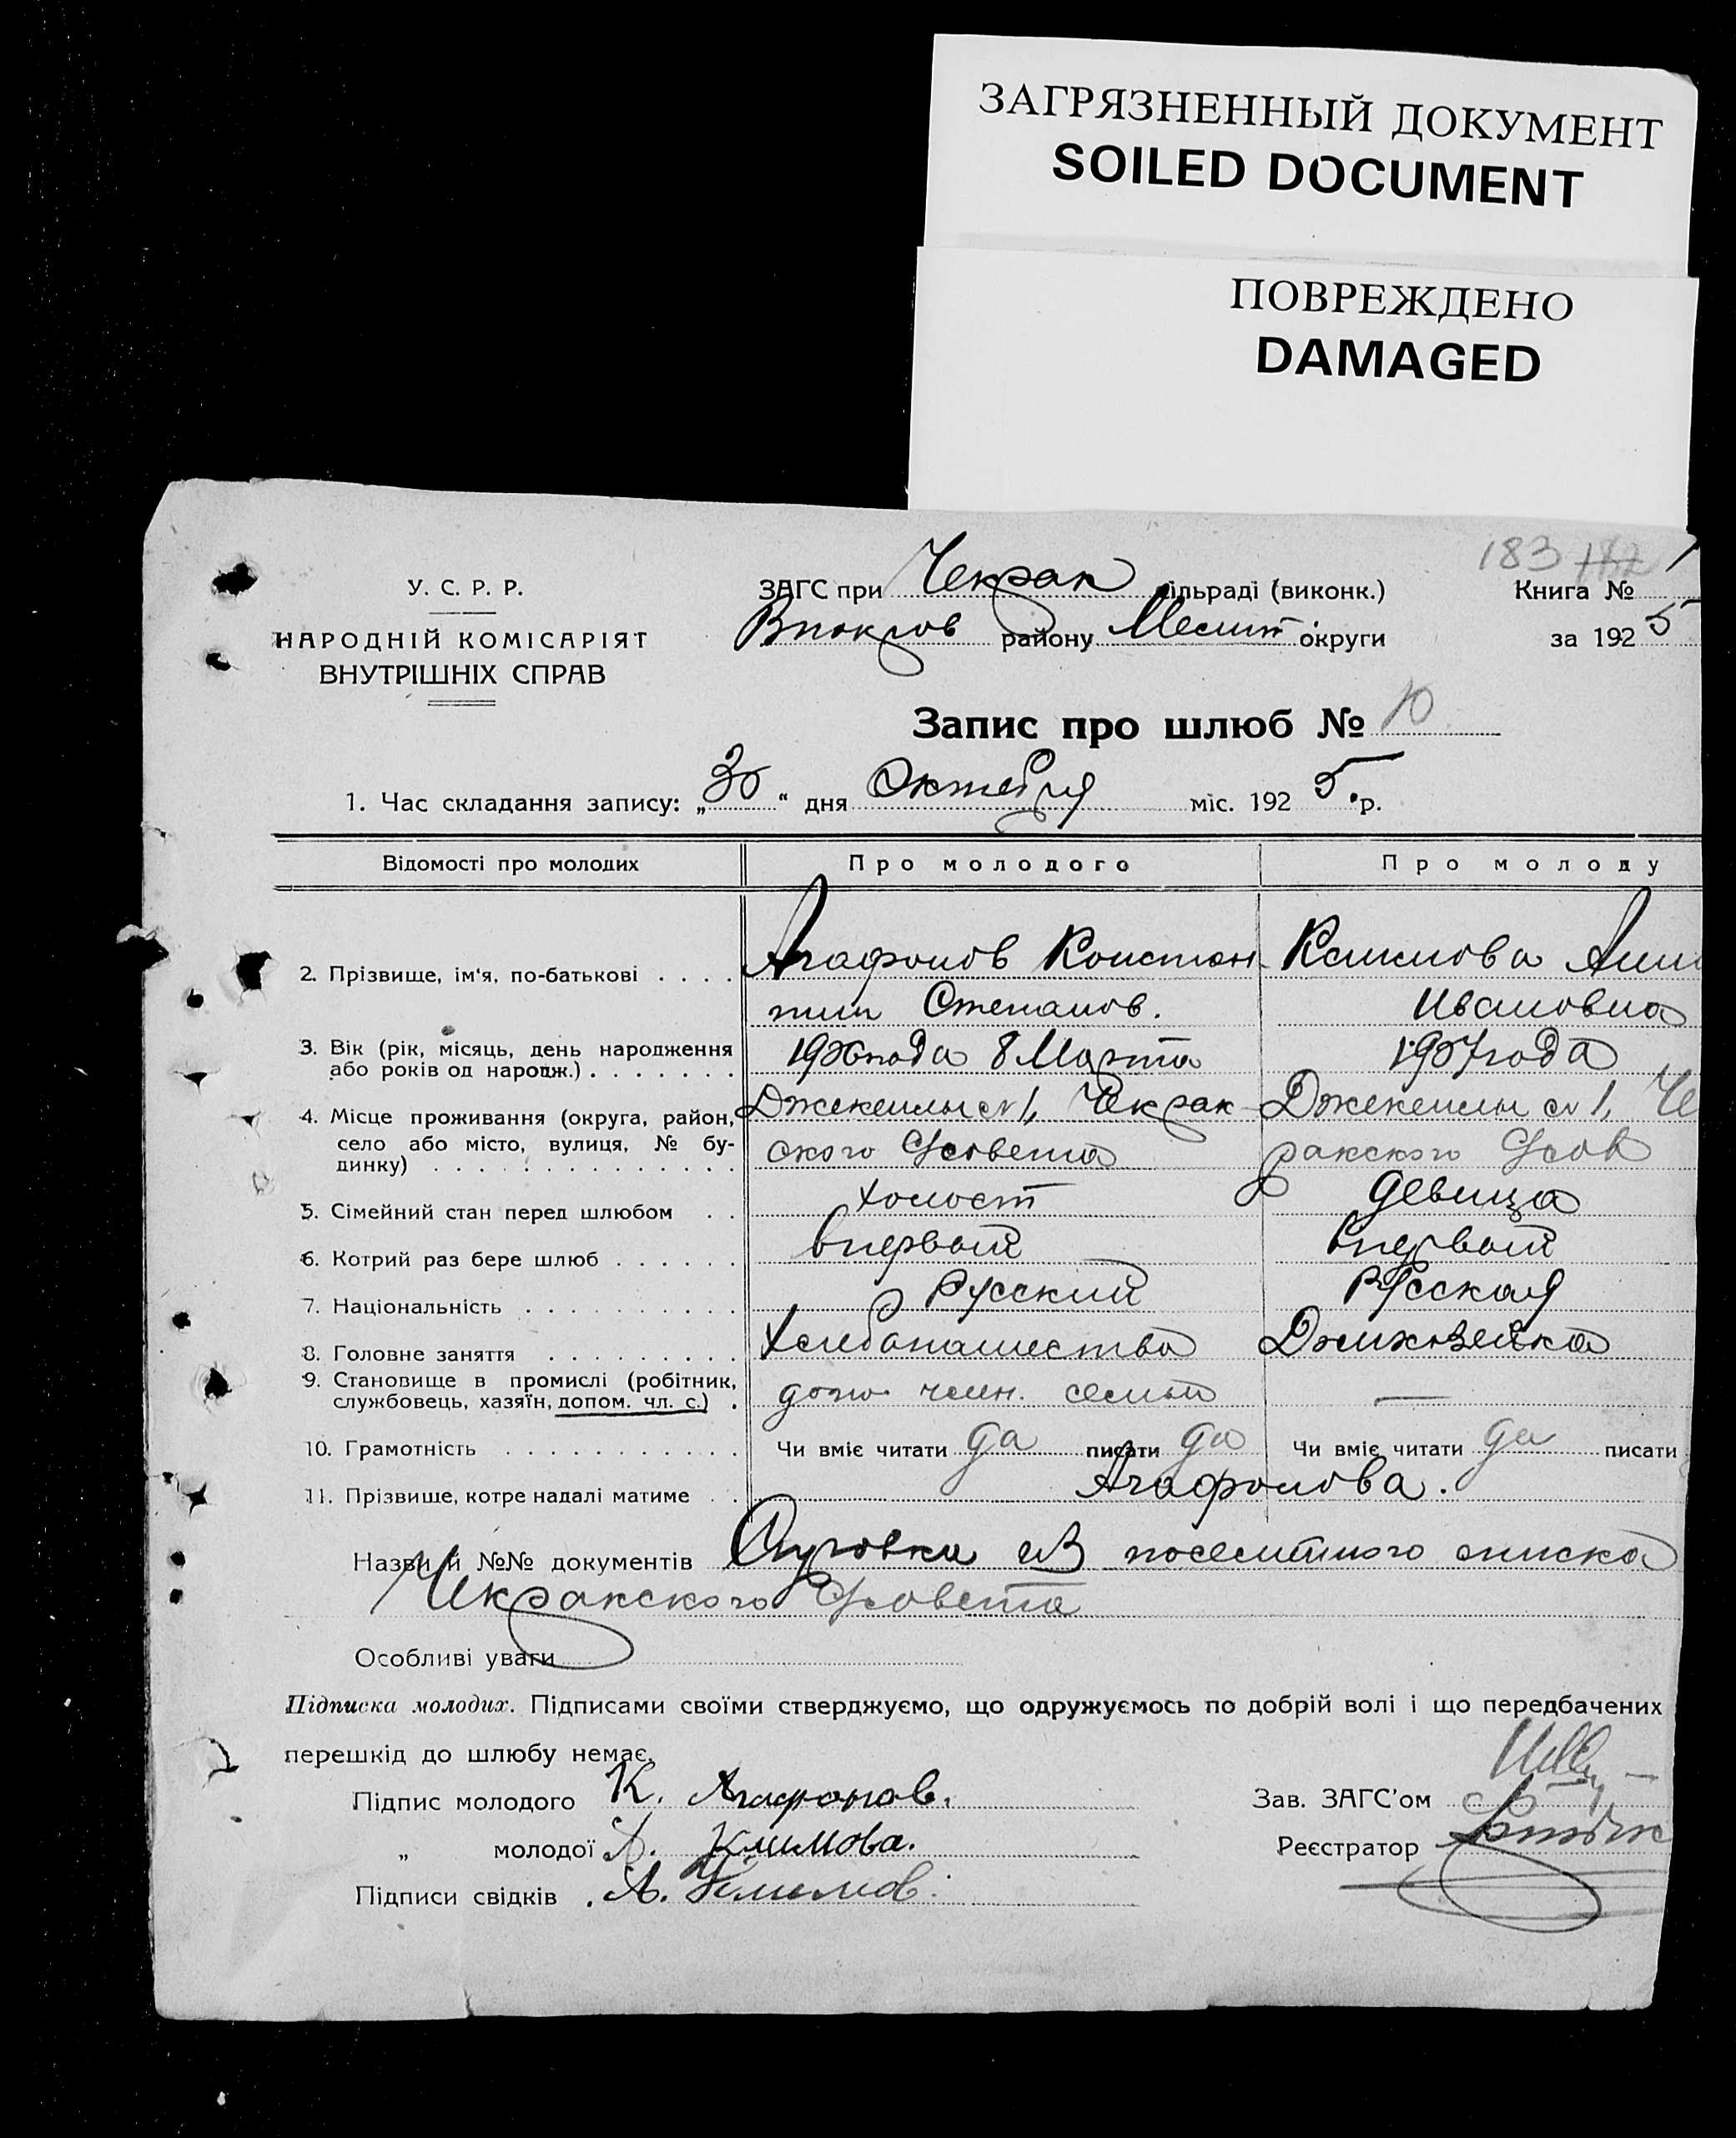 ЗАГРЯЗНЕННЫЙ ДОКУМЕНТ
SOILED DOCUMENT
ПОВРЕЖДЕНО
DAMAGED
183 182
У. С. Р. Р.
НАРОДНІЙ КОМІСАРІЯТ
ВНУТРІШНІХ СПРАВ
ЗАГС при Чекрак сільраді (виконк.)
Впокров району Мелит. округи
Книга № 1
за 1925
Запис про шлюб № 10
1. Час складання запису: „30“ дня Октября міс. 1925 р.
Відомості про молодих Про молодого Про молоду
2. Прізвище, ім'я, по-батькові Агафонов Констан- Климова Анн
тин Степанов. Ивановна
3. Вік (рік, місяць, день народження 1906 года 8 Марта 1907 года
або років од народж.)
4. Місце проживання (округа, район, Джекельны № 1, Чекрак- Джекельны № 1, Че
село або місто, вулиця, № бу- ского С/совета ракского С/сов
динку)
5. Сімейний стан перед шлюбом холост девица
6. Котрий раз бере шлюб впервой впервой
7. Національність Русский Русская
8. Головне заняття Хлебопашество Домхозейка
9. Становище в промислі (робітник, член. семьи —
службовець, хазяїн, допом. чл. с.)
10. Грамотність Чи вміє читати да писати да Чи вміє читати да писати
11. Прізвище, котре надалі матиме Агафонова.
Назви й №№ документів из посемейного списка
Чекракского С/совета
Особливі уваги
Підписка молодих. Підписами своїми стверджуємо, що одружуємось по добрій волі і що передбачених
перешкід до шлюбу немає.
Підпис молодого К. Агафонов.
„ молодої А. Климова.
Підписи свідків А. Климов.
Зав. ЗАГС'ом
Реєстратор